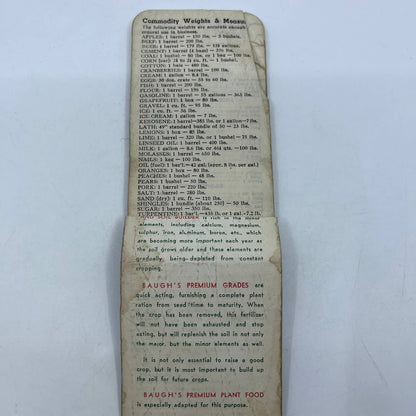 Commodity Weights & Measu
The following weights are accurate enough
normal use in business.
APPLES: 1 barrel - 150 lbs.
BEEF: 1 barrel - 200 lbs.
BEER: 1 barrel - 31½ gallons
CEMENT: 1 barrel (4 bags)
COAL: 1 bushel - 80 lbs. or 1 box - 100 lbs.
CORN (bar)
COTTON: 1 bale - 480 lbs.
CRANBERRIES: 1 barrel - 100 lbs.
CREAM: 1 gallon - 8.4 lbs.
EGGS: 30 doz. crate - 55 to 60 lbs.
FISH: 1 barrel - 200 lbs.
FLOUR: 1 barrel - 196 lbs.
GASOLINE: 1 barrel - 55 gallons -
GRAPEFRUIT: 1 box - 80 lbs.
GRAVEL: 1 cu. ft. - 95 lbs.
ICE: 1 cu. ft. - 56 lbs.
ICE CREAM: 1 gallon - 7 lbs.
KEROSENE: 1 barrel - 385 lbs. or 1 gallon - 7 lbs.
LATH: 4' standard bundle of 50 - 25 lbs.
LEMONS: 1 box - 85 lbs.
LIME: 1 barrel - 320 lbs. or 1 bushel - 75 lbs.
LINSEED OIL: 1 barrel - 400 lbs.
MILK: 1 gallon - 8.6 lbs. or 40 qts. - 100 lbs.
MOLASSES: 1 barrel - 650 lbs.
NAILS: 1 keg - 100 lbs.
OIL (fuel): 1 bar'l - 42 gal (appr. 8 lbs. per gal.)
ORANGES: 1 box - 80 lbs.
PEACHES: 1 bushel - 48 lbs.
PEARS: 1 bushel - 50 lbs.
PORK: 1 barrel - 220 lbs.
SALT: 1 barrel - 280 lbs.
SAND (dry): 1 cu. ft. - 110 lbs.
SHINGLES: 1 bundle (about 250) - 50 lbs.
SUGAR: 1 barrel - 350 lbs.
TURPENTINE: 1 bar'l - 436 lb. or 1 gal. - 7.2 lb.
SOIL BUILDER is rich in the minor
elements, including calcium, magnesium,
sulphur, iron, aluminum, boron, etc., which
are becoming more important each year as
the soil grows older and these elements are
gradually being depleted from constant
cropping.
BAUGH'S PREMIUM GRADES are
quick acting, furnishing a complete plant
ration from seed time to maturity. When
the crop has been removed, this fertilizer
will not have been exhausted and stop
acting, but will replenish the soil in not only
the major, but the minor elements as well.
It is not only essential to raise a good
crop, but it is most important to build up
the soil for future crops.
BAUGH'S PREMIUM PLANT FOOD
is especially adapted for this purpose.